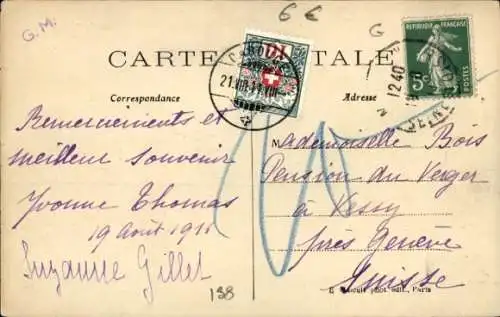 G.M.
6 €
G
CARTE POSTALE
Correspondance
Adresse
RÉPUBLIQUE FRANÇAISE
5c
POSTES
10
21.VIII.11
12 40
SEINE
Remerciements et
meilleur souvenir
Yvonne Thomas
19 Août 1911
Suzanne Gillet
138
Mademoiselle Bois
Pension du Verger
à Vessy
près Genève
Suisse
phot. édit., Paris